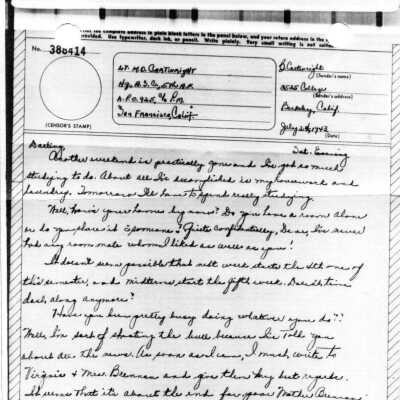 the complete address in plain block letters in the panel below, and your return address in the
provided. Use typewriter, dark ink, or pencil. Write plainly. Very small writing is not
No. 386414
(CENSOR'S STAMP)
Lt. M.D. Cartwright
A.P.O. 925, c/o P.M.
San Francisco, Calif.
B Cartwright
(Sender's name)
2525 College
(Sender's address)
Berkeley, Calif.
July 24, 1943
(Date)
Darling, Sat. Evening
Another weekend is practically gone and I've got so much
studying to do. About all I've accomplished is my housework and
laundry. Tomorrow I'll have to spend really studying.
Well, how's your house by now? Do you have a room alone
or do you share it & someone? Quite confidentially, Dear, I've never
had any room mate whom I liked as well as you!
It doesn't seem possible that next week starts the 4th one of
this semester, and midterms start the fifth week. Does time
dash along anymore?
Have you been pretty busy doing whatever you do?!
Well, I'm sort of shooting the bull because I've told you
about all the news. As soon as I can, I must write to
Virginia & Mrs. Brennan and give them my best regards.
It seems that it's about the end for poor Mother Brennan